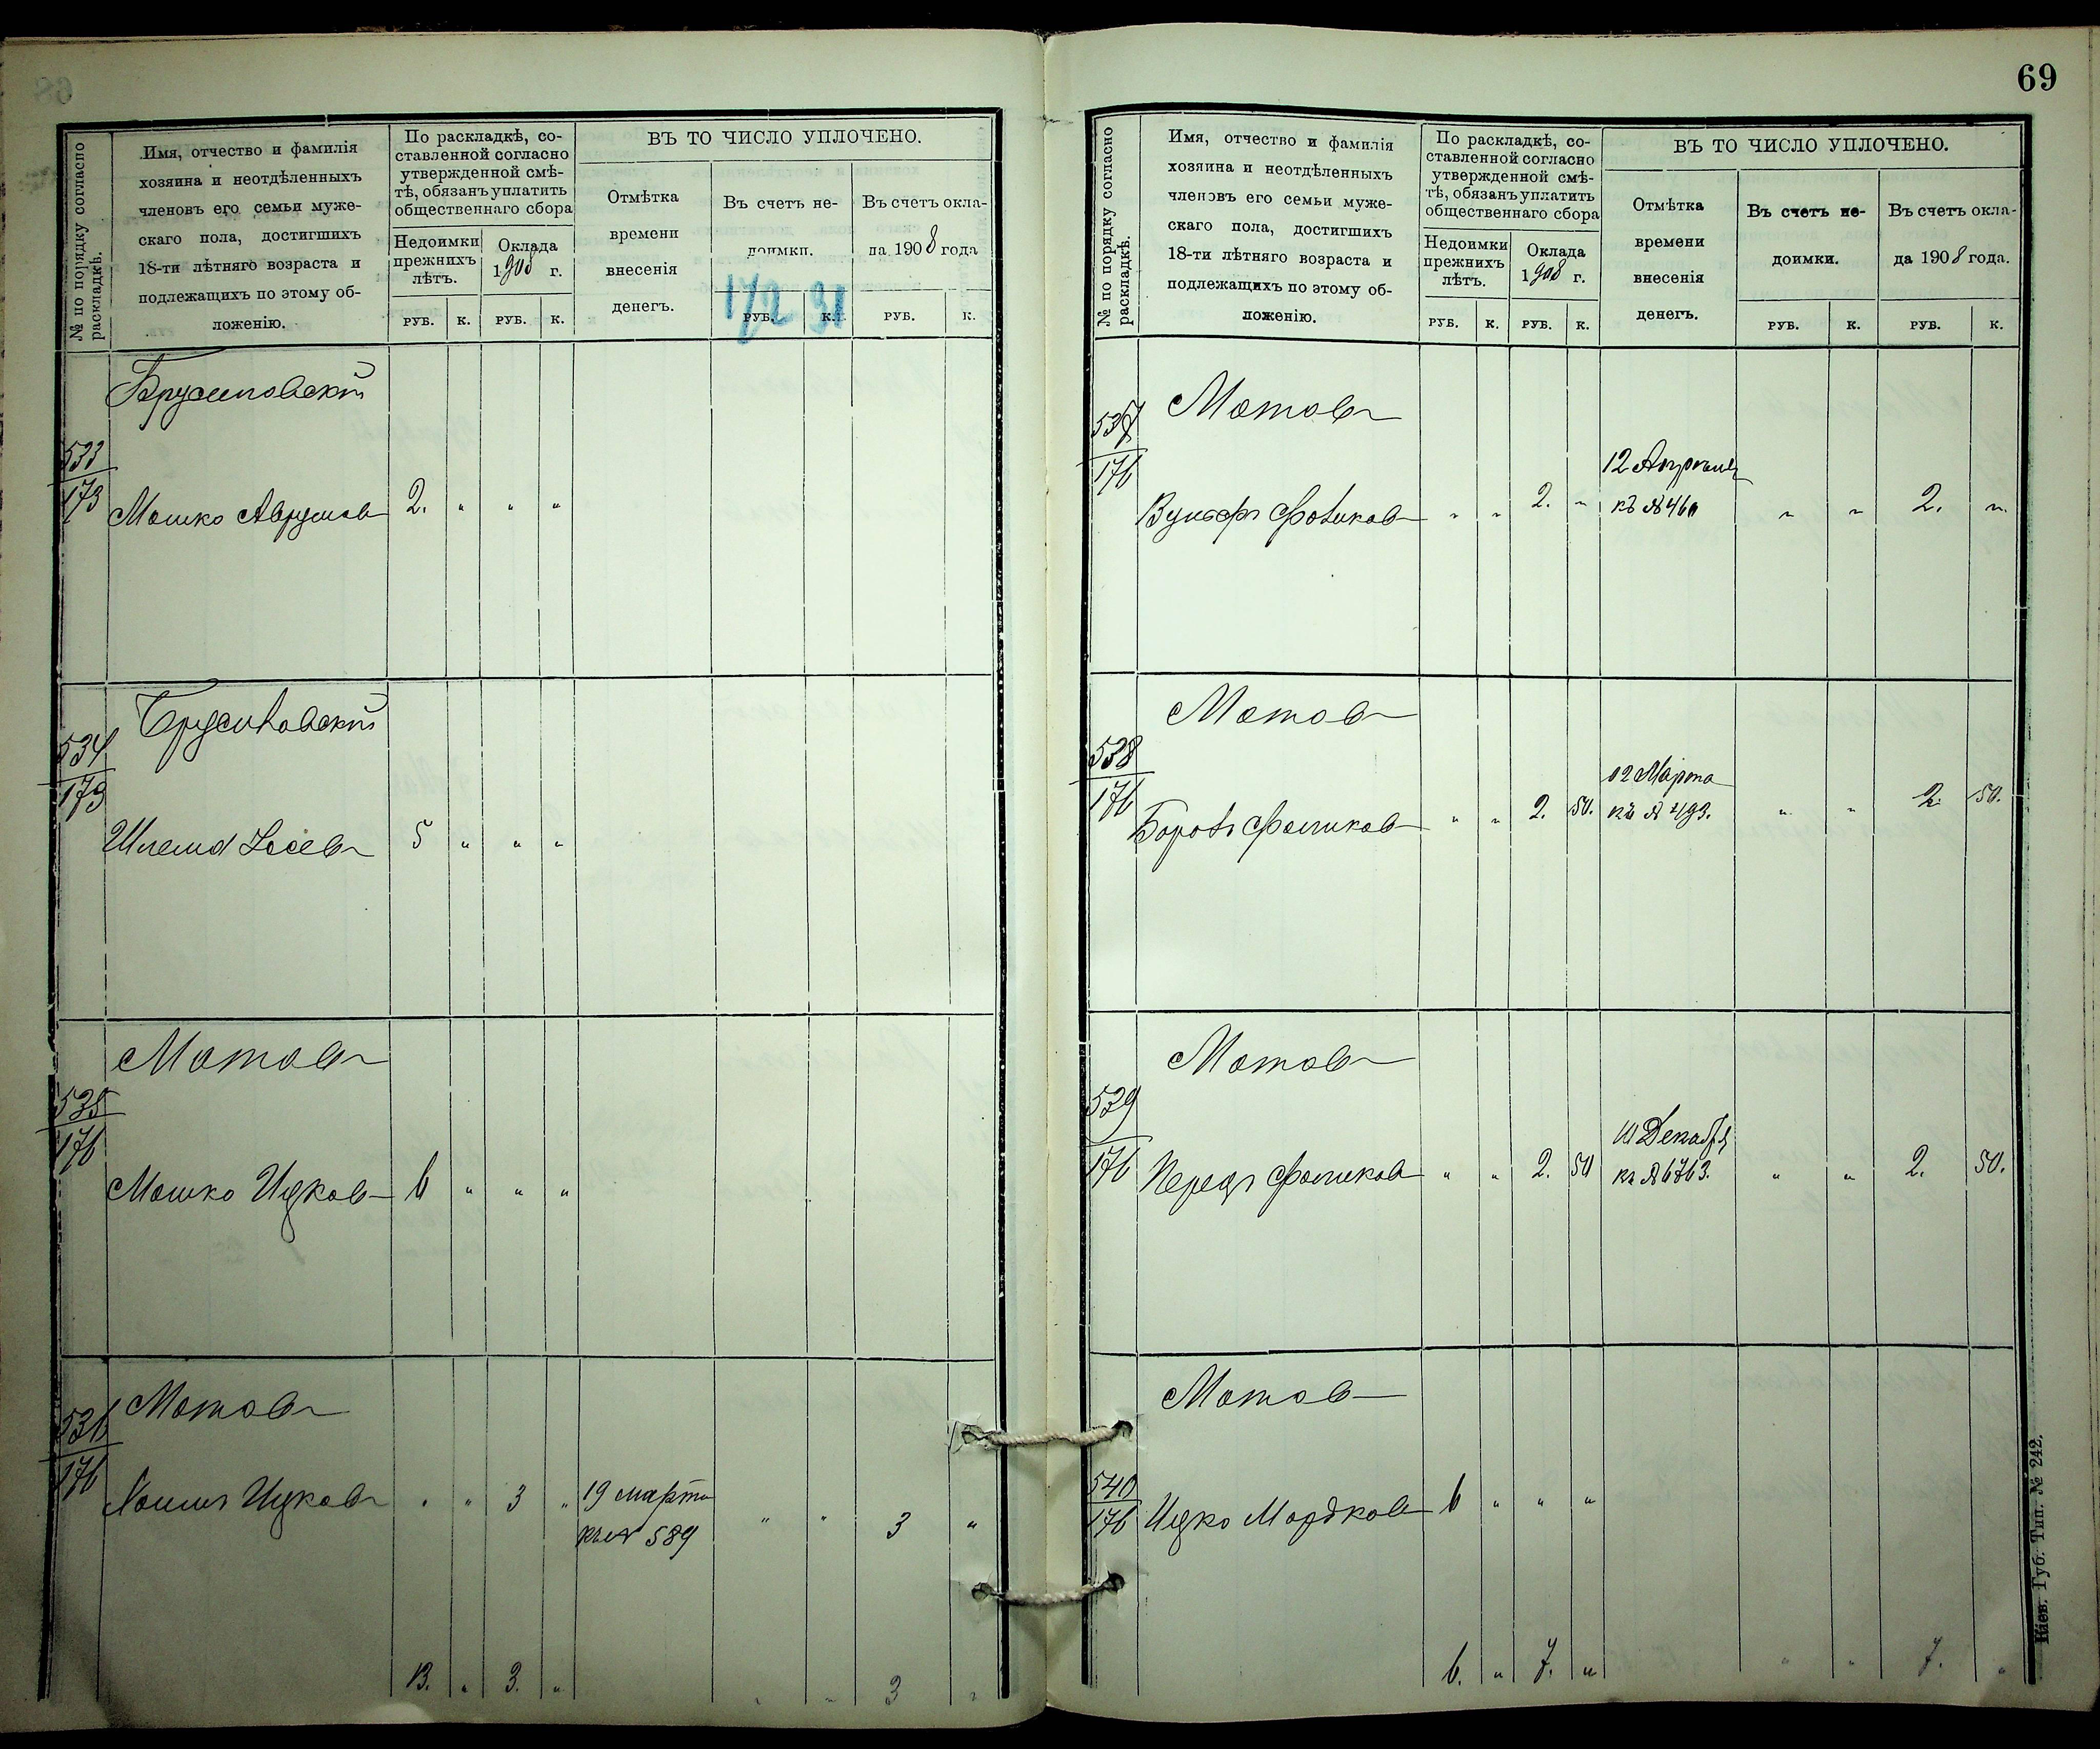 № по порядку согласно раскладкѣ.
Имя, отчество и фамилія
хозяина и неотдѣленныхъ
членовъ его семьи муже-
скаго пола, достигшихъ
18-ти лѣтняго возраста и
подлежащихъ по этому об-
ложенію.
По раскладкѣ, со-
ставленной согласно
утвержденной смѣ-
тѣ, обязанъ уплатить
общественнаго сбора
Недоимки
прежнихъ
лѣтъ.
Оклада
1908 г.
РУБ. К. РУБ. К.
ВЪ ТО ЧИСЛО УПЛОЧЕНО.
Отмѣтка
времени
внесенія
денегъ.
Въ счетъ не-
доимки.
172 31
РУБ. К.
Въ счетъ окла-
да 1908 года
РУБ. К.
Брусиловскій
533
173
Мошко Аврумов 2. " " "
Брусиловскій
534
173
Шлема 5 " " "
Мотов
535
176
Мошко Ицков 6 " " "
Мотов
536
176
Ицков " " 3 "
19 марта
къ № 589
" " 3 "
13. " 3. " " " 3 "
69
№ по порядку согласно раскладкѣ.
Имя, отчество и фамилія
хозяина и неотдѣленныхъ
членовъ его семьи муже-
скаго пола, достигшихъ
18-ти лѣтняго возраста и
подлежащихъ по этому об-
ложенію.
По раскладкѣ, со-
ставленной согласно
утвержденной смѣ-
тѣ, обязанъ уплатить
общественнаго сбора
Недоимки
прежнихъ
лѣтъ.
Оклада
1908 г.
РУБ. К. РУБ. К.
ВЪ ТО ЧИСЛО УПЛОЧЕНО.
Отмѣтка
времени
внесенія
денегъ.
Въ счетъ не-
доимки.
РУБ. К.
Въ счетъ окла-
да 1908 года.
РУБ. К.
Мотов
537
176
" " 2. "
12 Апрѣля
къ №
" " 2. "
Мотов
538
176
Фоликов " " 2. 50.
12 Марта
къ № 493.
" " 2. 50.
Мотов
539
176
Фоликов " " 2. 50
10 Декабря
къ № 6763.
" " 2. 50.
Мотов
540
176
Ицко Мордков 6 " " "
6. " 7. " " " 7. "
Кіев. Губ. Тип. № 242.